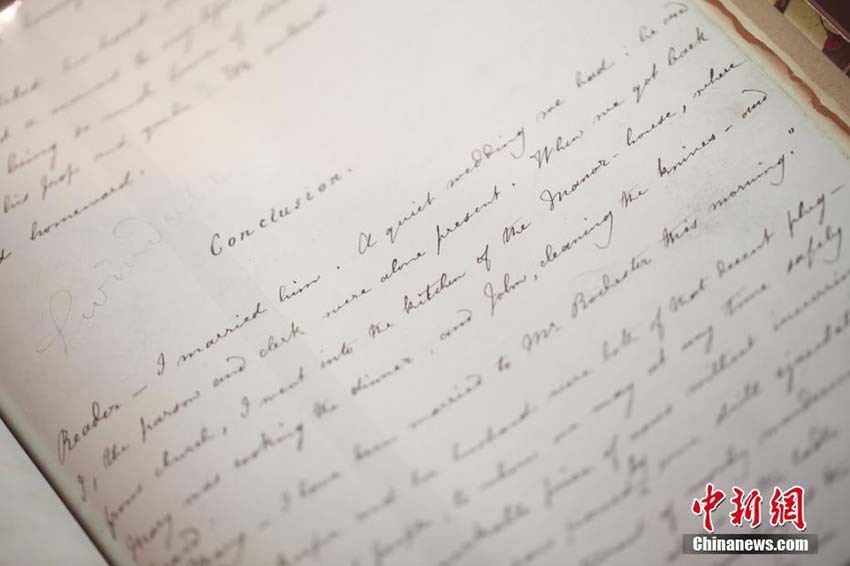 his hand
a moment to my
being so much lower of
his prop and guide. We entered
homeward.
Conclusion.
Reader – I married him. A quiet wedding we had: he and
I, the parson and clerk were alone present. When we got back
from church, I went into the kitchen of the Manor-house, where
Mary was cooking the dinner, and John, cleaning the knives – and
said,
Mary – I have been married to Mr Rochester this morning."
and her husband were both of that decent phleg-
people, to whom one may at any time safely
remarkable piece of news without incurring
by some shrill
of wordy
中新网
Chinanews.com